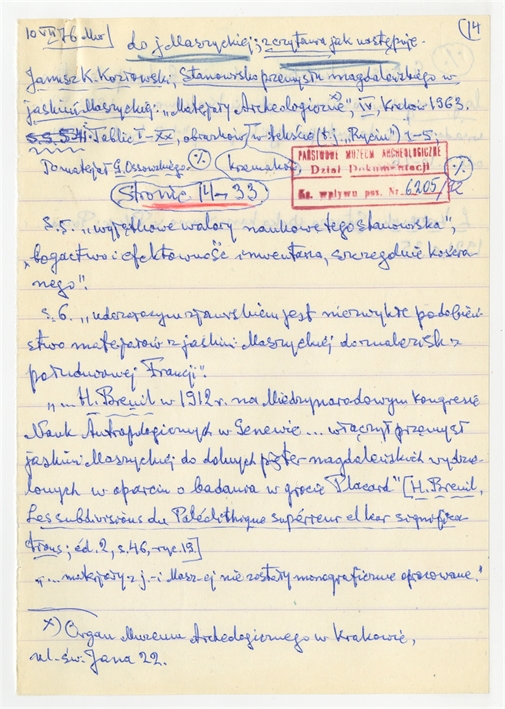 10 VII 76 14
do j. Maszyckiej; zczytana jak następuje.
Janusz K. Kozłowski, Stanowisko przemysłu magdaleńskiego w
jaskini Maszyckiej. „Materjały Archeologiczne x)", IV, Kraków 1963.
Tablic I-XX, obrazków w tekście (t.j. „Rycin") 1-5.
To materjał G. Ossowskiego. %
PAŃSTWOWE MUZEUM ARCHEOLOGICZNE
Dział Dokumentacji
Ks. wpływu poz. Nr 6205/82
%
Stronic 14-33
s. 5. „wyjątkowe walory naukowe tego stanowiska",
„bogactwo i efektowność inwentarza, szczególnie kościa-
nego".
s. 6. „uderzającym zjawiskiem jest niezwykłe podobień-
stwo materjałów z jaskini Maszyckiej do znalezisk z
południowej Francji".
„... H. Breuil w 1912 r. na Międzynarodowym Kongresie
Nauk Antropologicznych w Genewie ... włączył przemysł
jaskini Maszyckiej do dolnych magdaleńskich wydzie-
lonych w oparciu o badania w grocie Placard" [H. Breuil,
Les subdivisions du Paléolithique supérieur et leur significa-
tions; éd. 2, s. 46, ryc. 13.]
„... materjały z j-i Masz-ej nie zostały monograficznie opracowane."
x) Organ Muzeum Archeologicznego w Krakowie,
ul. św. Jana 22.